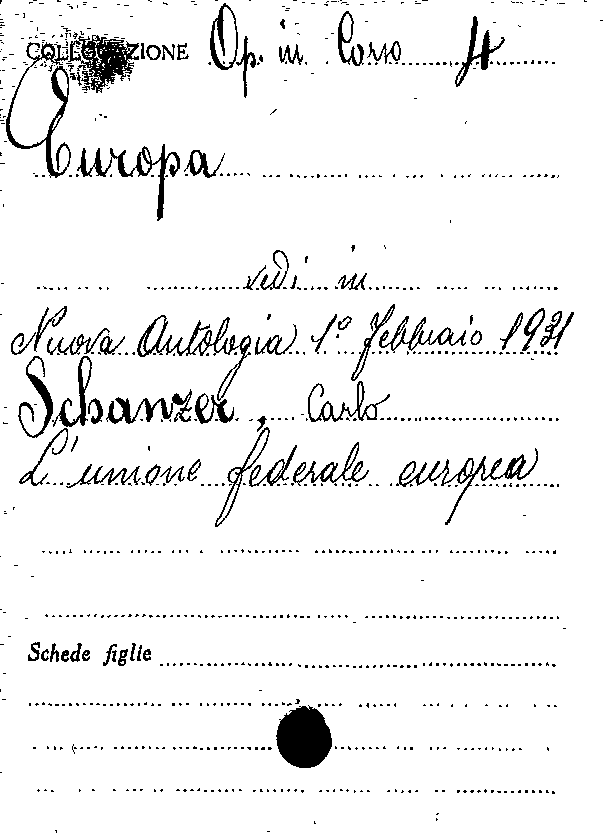 COLLOCAZIONE Op. in Corso 4
Europa
vedi in
Nuova Antologia 1° Febbraio 1931
Schanzer, Carlo
L'unione federale europea
Schede figlie